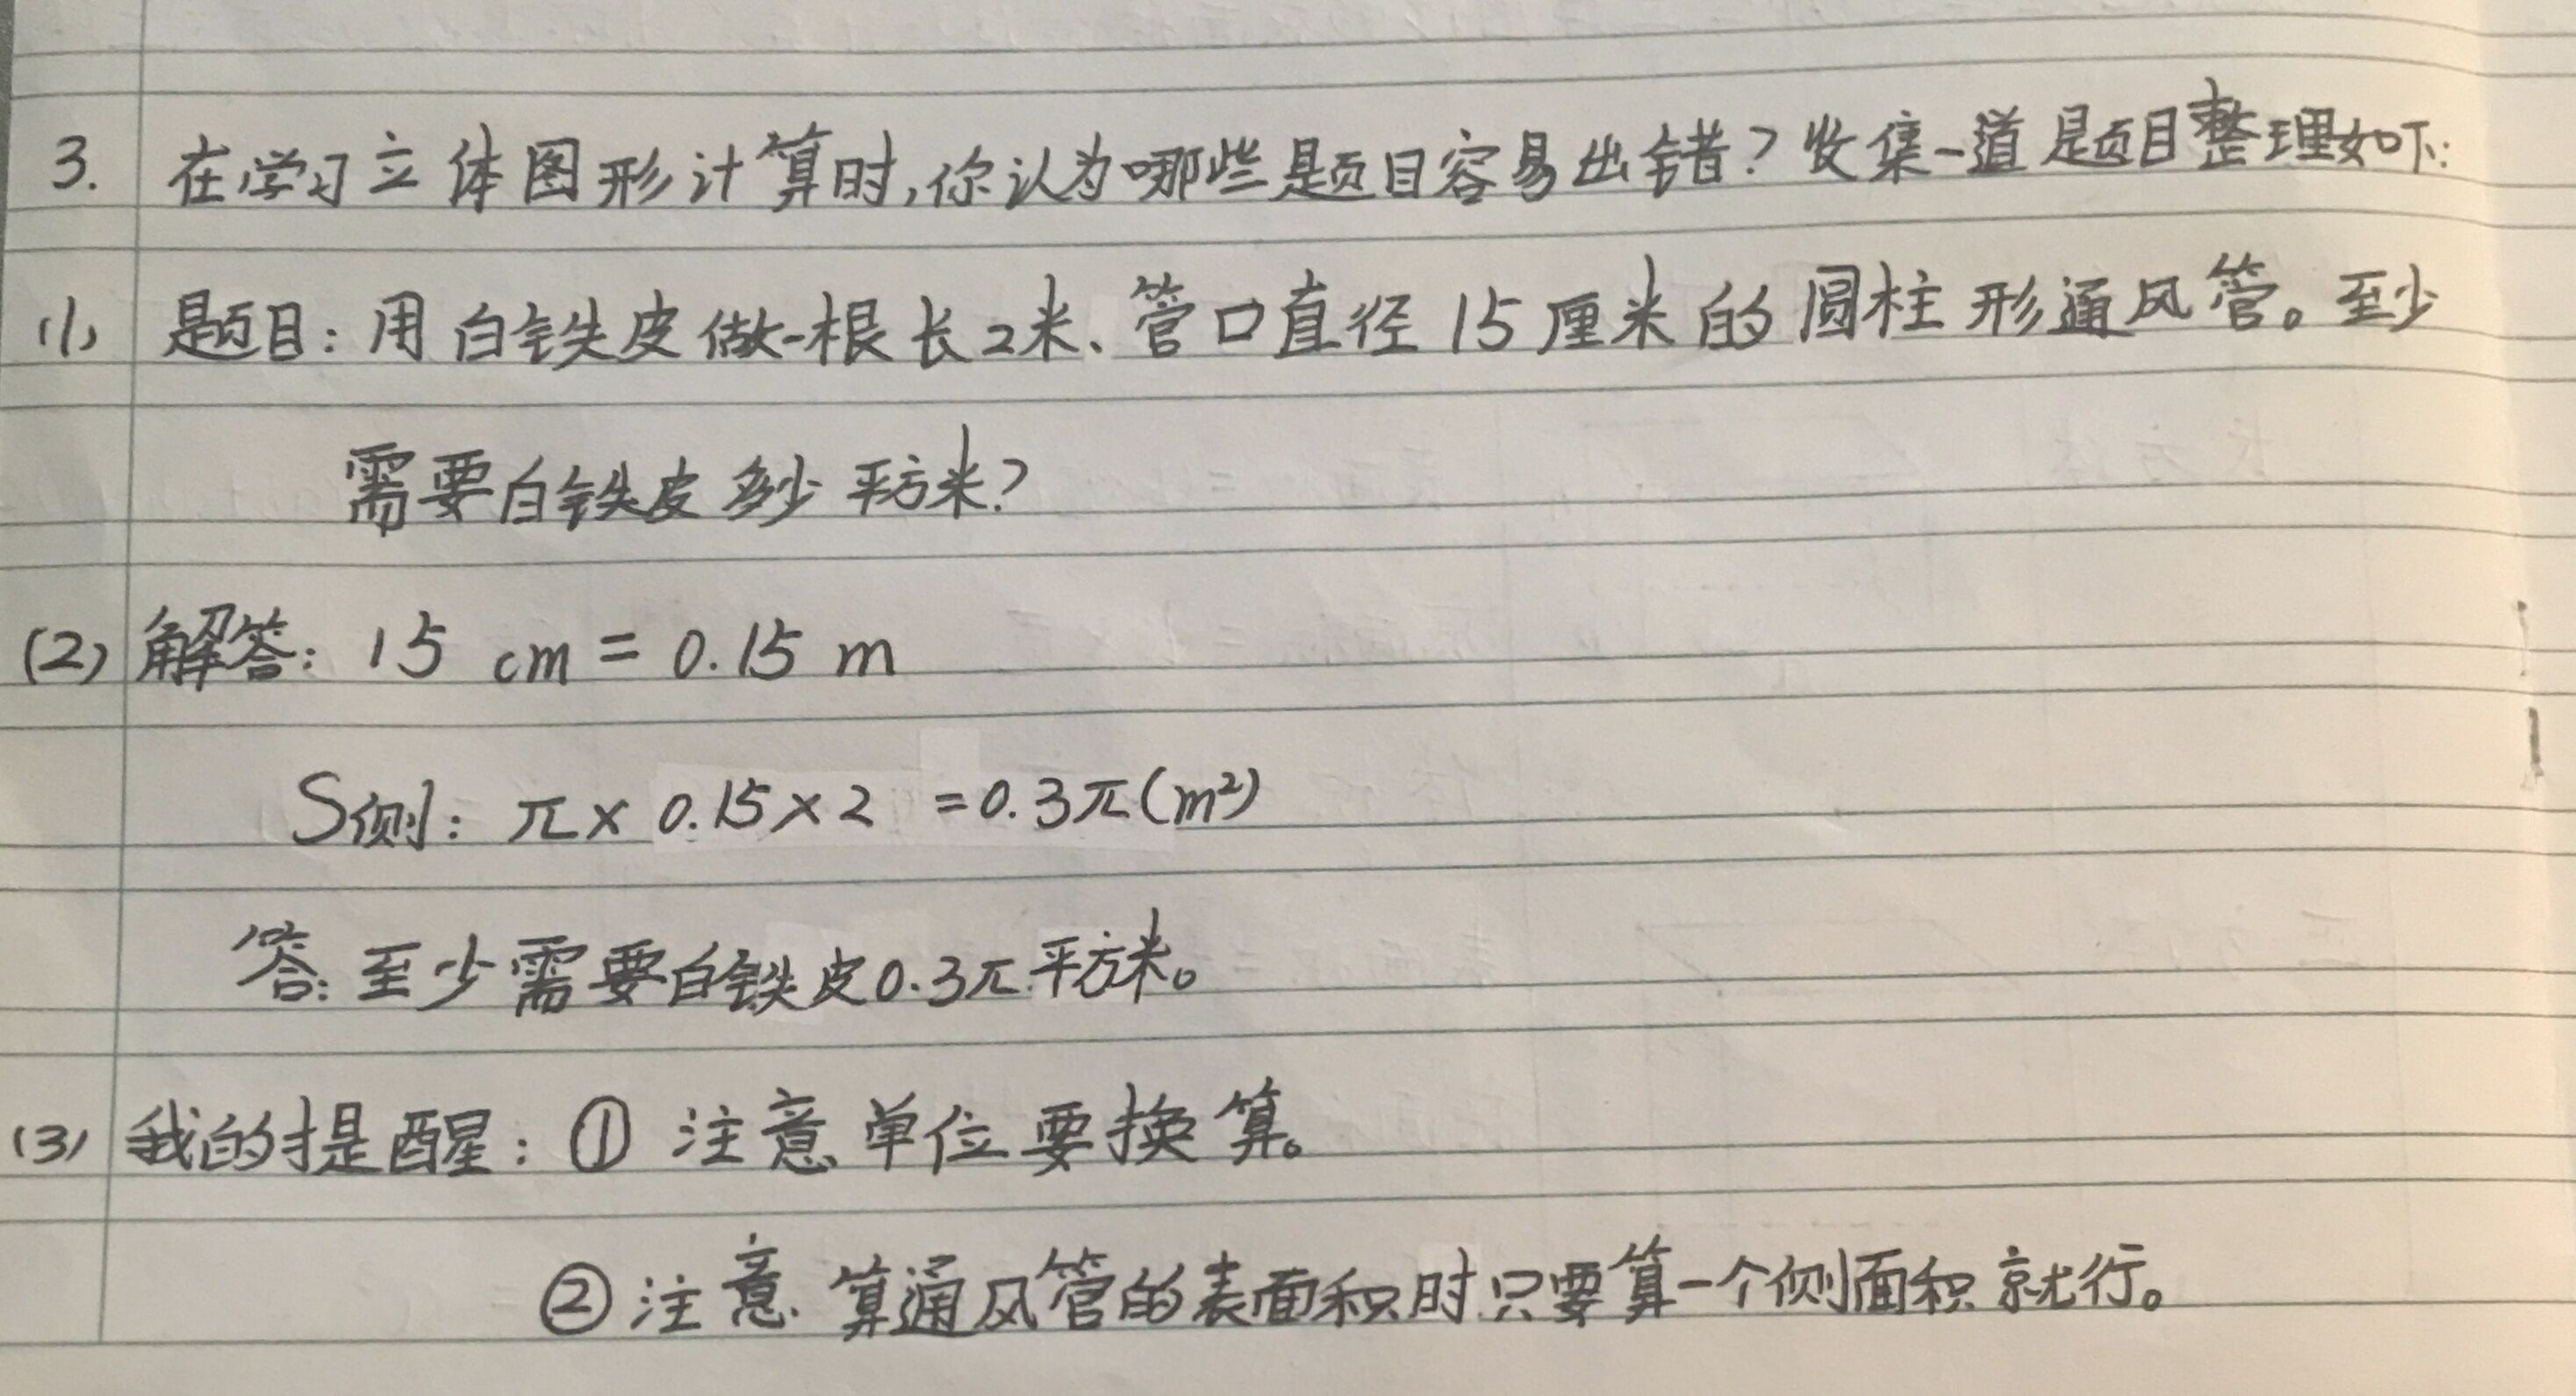 3. 在学习立体图形计算时,你认为哪些题目容易出错?收集一道题目整理如下:
(1) 题目:用白铁皮做一根长2米、管口直径15厘米的圆柱形通风管。至少
需要白铁皮多少平方米?
(2) 解答: 15 cm = 0.15 m
S侧: π× 0.15×2 =0.3π(m²)
答:至少需要白铁皮0.3π平方米。
(3) 我的提醒: ① 注意单位要换算。
② 注意算通风管的表面积时只要算一个侧面积就行。